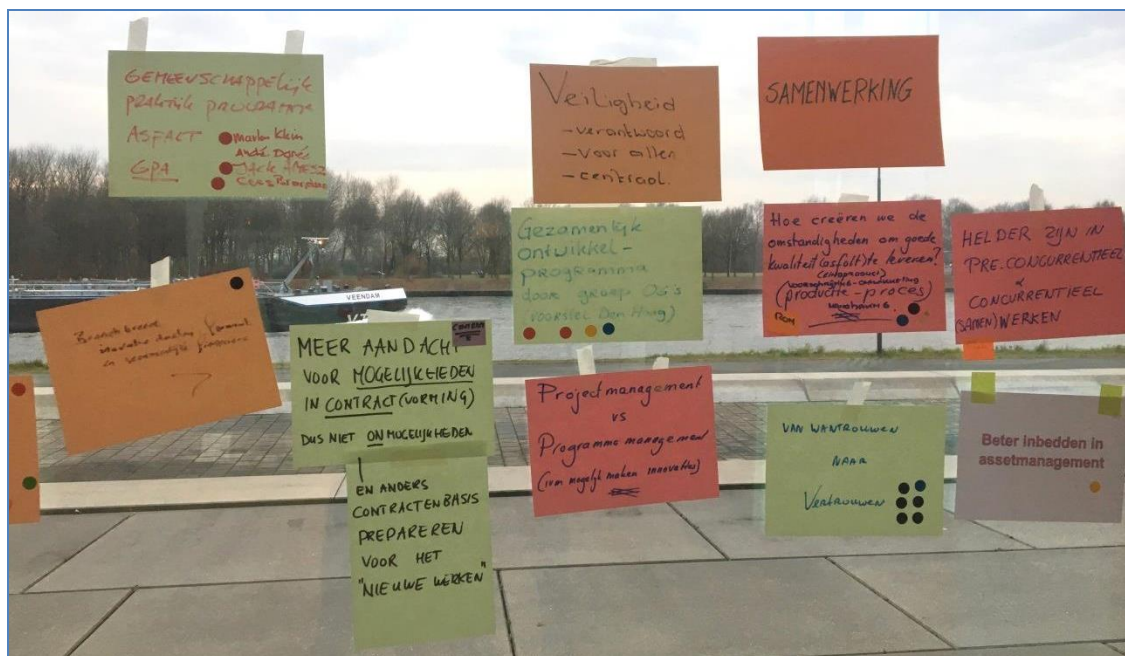 GEMEENSCHAPPELIJK
PRAKTIJK PROGRAMMA
ASFALT
GPA
Marlon Klein
André
Jack
Cees
Veiligheid
- verantwoord
- voor allen
- centraal.
SAMENWERKING
Gezamenlijk
ontwikkel-
programma
door groep OG's
(voorstel Den Haag)
Hoe creëren we de
omstandigheden om goede
kwaliteit (asfalt) te leveren?
(productie-proces)
HELDER ZIJN IN
PRE.CONCURRENTIEEL
&
CONCURRENTIEEL
(SAMEN)WERKEN
VEENDAM
MEER AANDACHT
VOOR MOGELIJKHEDEN
IN CONTRACT(VORMING)
DUS NIET ONMOGELIJKHEDEN
EN ANDERS
CONTRACTENBASIS
PREPAREREN
VOOR HET
"NIEUWE WERKEN"
Projectmanagement
vs
Programma management
(ivm mogelijk maken innovaties)
VAN WANTROUWEN
NAAR
VERTROUWEN
Beter inbedden in
assetmanagement